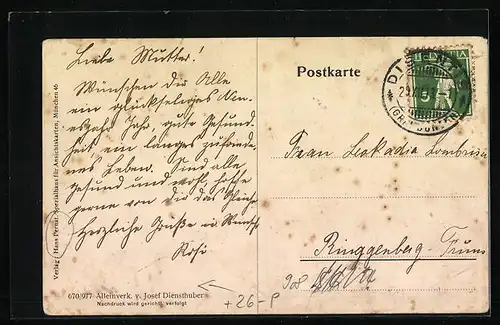 Liebe Mutter!
Wünschen dir Alle
ein glückseliges Neu-
Jahr, gute Gesund
heit ein langes zufriede
nes Leben. Sind alle
gesund und wohl, hoffe
gerne von dir das Gleiche
Herzliche Grüße u. Wünsche
Rosi
Verlag: Hans Pernat, Spezialhaus für Ansichtskarten, München 46
670/977 Alleinverk. v. Josef Diensthuber
Nachdruck wird gerichtl. verfolgt
Postkarte
HELVETIA
5
Frau Leokadia
Ringgenberg Truns
+ 26 -